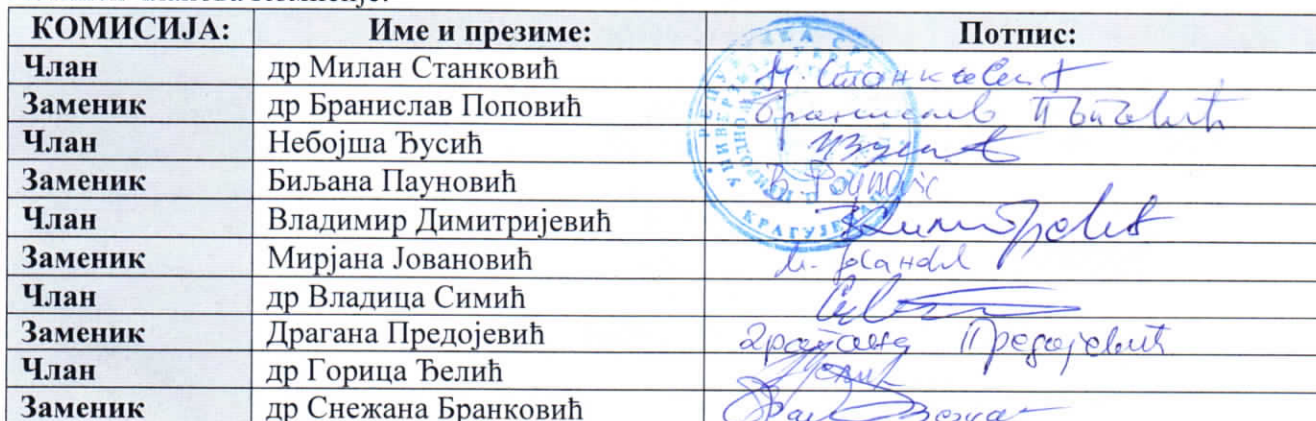 КОМИСИЈА: Име и презиме: Потпис:
Члан др Милан Станковић М. Станковић
Заменик др Бранислав Поповић Бранислав Поповић
Члан Небојша Ђусић
Заменик Биљана Пауновић B. Paunović
Члан Владимир Димитријевић
Заменик Мирјана Јовановић
Члан др Владица Симић
Заменик Драгана Предојевић Драгана Предојевић
Члан др Горица Ђелић
Заменик др Снежана Бранковић